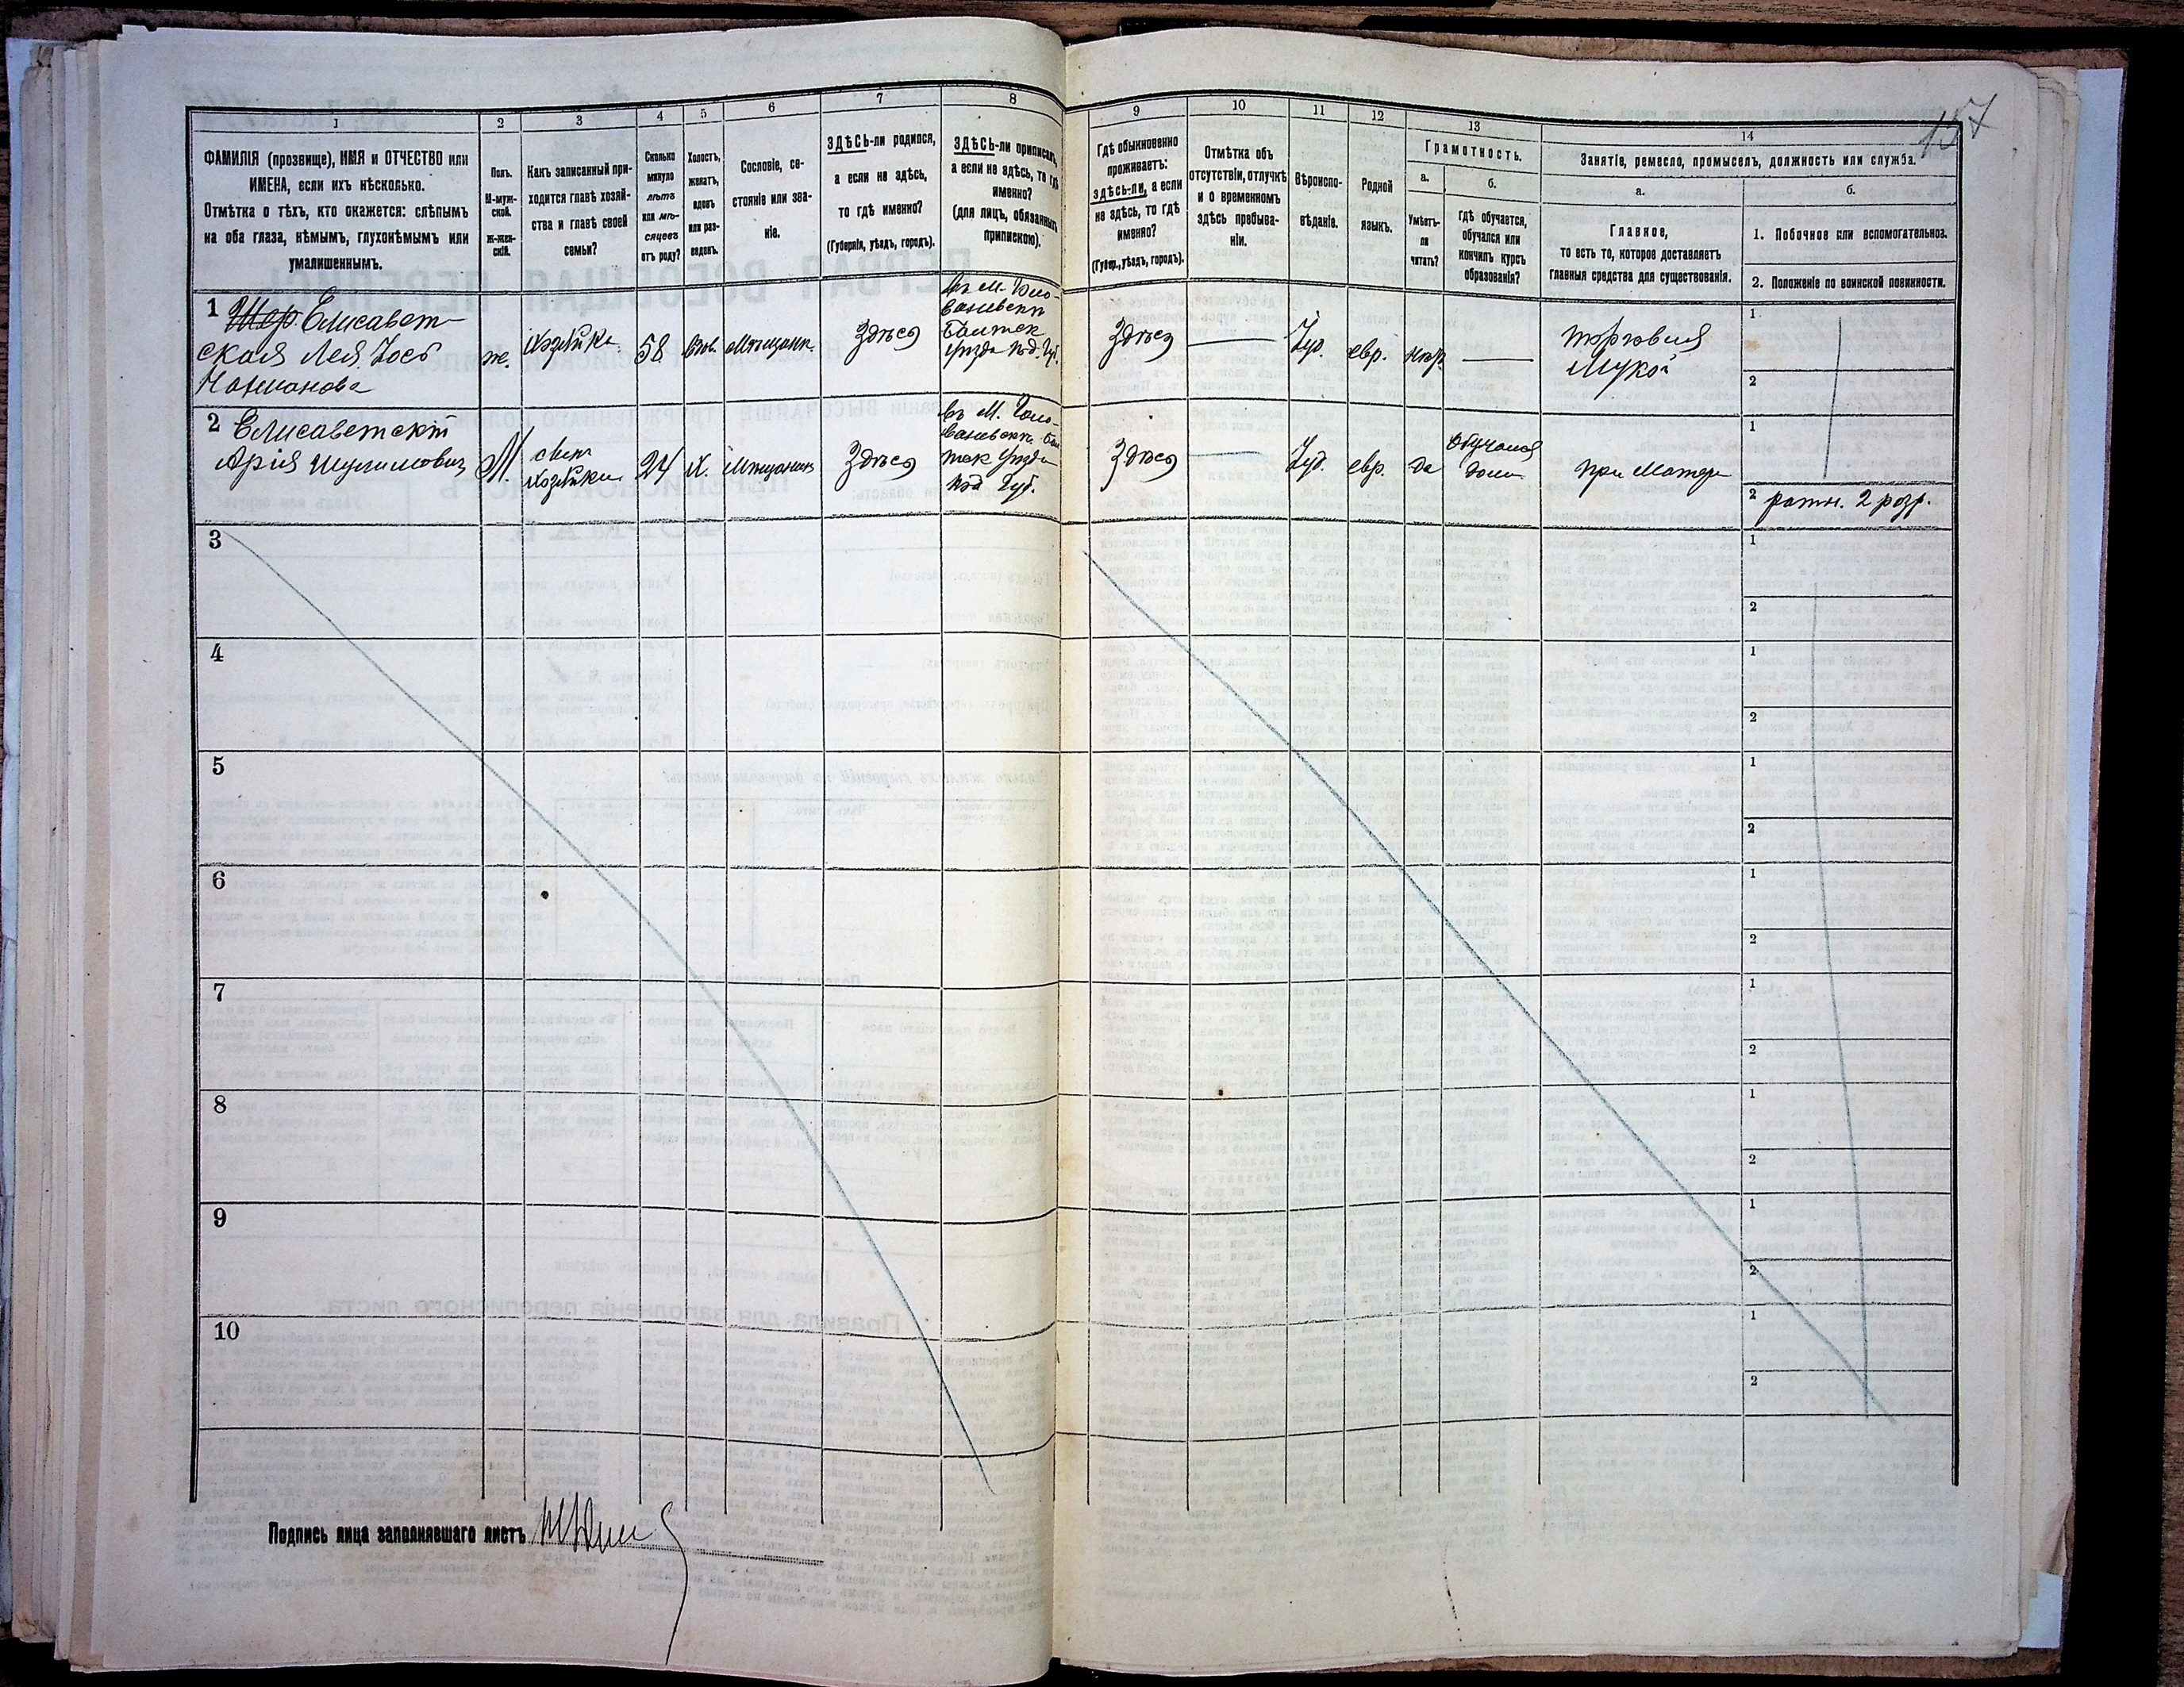 157
1
2
3
4
5
6
7
8
9
10
11
12
13
14
ФАМИЛІЯ (прозвище), ИМЯ и ОТЧЕСТВО или
ИМЕНА, если ихъ нѣсколько.
Отмѣтка о тѣхъ, кто окажется: слѣпымъ
на оба глаза, нѣмымъ, глухонѣмымъ или
умалишеннымъ.
Полъ.
М-муж-
ской.
Ж-жен-
скій.
Какъ записанный при-
ходится главѣ хозяй-
ства и главѣ своей
семьи?
Сколько
минуло
лѣтъ
или мѣ-
сяцевъ
отъ роду?
Холостъ,
женатъ,
вдовъ
или раз-
веденъ.
Сословіе, со-
стояніе или зва-
ніе.
ЗДѢСЬ-ли родился,
а если не здѣсь,
то гдѣ именно?
(Губернія, уѣздъ, городъ).
ЗДѢСЬ-ли приписанъ,
а если не здѣсь, то гдѣ
именно?
(для лицъ, обязанныхъ
припискою).
Гдѣ обыкновенно
проживаетъ:
здѣсь-ли, а если
не здѣсь, то гдѣ
именно?
(Губер., уѣздъ, городъ).
Отмѣтка объ
отсутствіи, отлучкѣ
и о временномъ
здѣсь пребыва-
ніи.
Вѣроиспо-
вѣданіе.
Родной
языкъ.
Грамотность.
а.
Умѣетъ-
ли
читать?
б.
гдѣ обучается,
обучался или
кончилъ курсъ
образованія?
Занятіе, ремесло, промыселъ, должность или служба.
а.
Главное,
то есть то, которое доставляетъ
главныя средства для существованія.
б.
1. Побочное или вспомогательное.
2. Положеніе по воинской повинности.
1 Елисавет-
ская Лея Іось
Нахманова
ж.
Хозяйка
58
вдов.
Мѣщанк.
Здѣсь
въ М. Голо-
ваневскъ
Балтск
Уѣзда Под. Губ.
Здѣсь
Іуд.
евр.
нѣт.
торговля
Мукой
1
2
2 Елисаветскій
Арія Шулимовичъ
М.
сынъ
хозяйки
24
Х.
Мѣщанинъ
Здѣсь
въ М. Голо-
ваневскъ Бал
тск Уѣзда
Под Губ.
Здѣсь
Іуд.
евр.
да
обучался
дома
при Матери
1
2 ратн. 2 разр.
3
1
2
4
1
2
5
1
2
6
1
2
7
1
2
8
1
2
9
1
2
10
1
2
Подпись лица заполнявшаго листъ